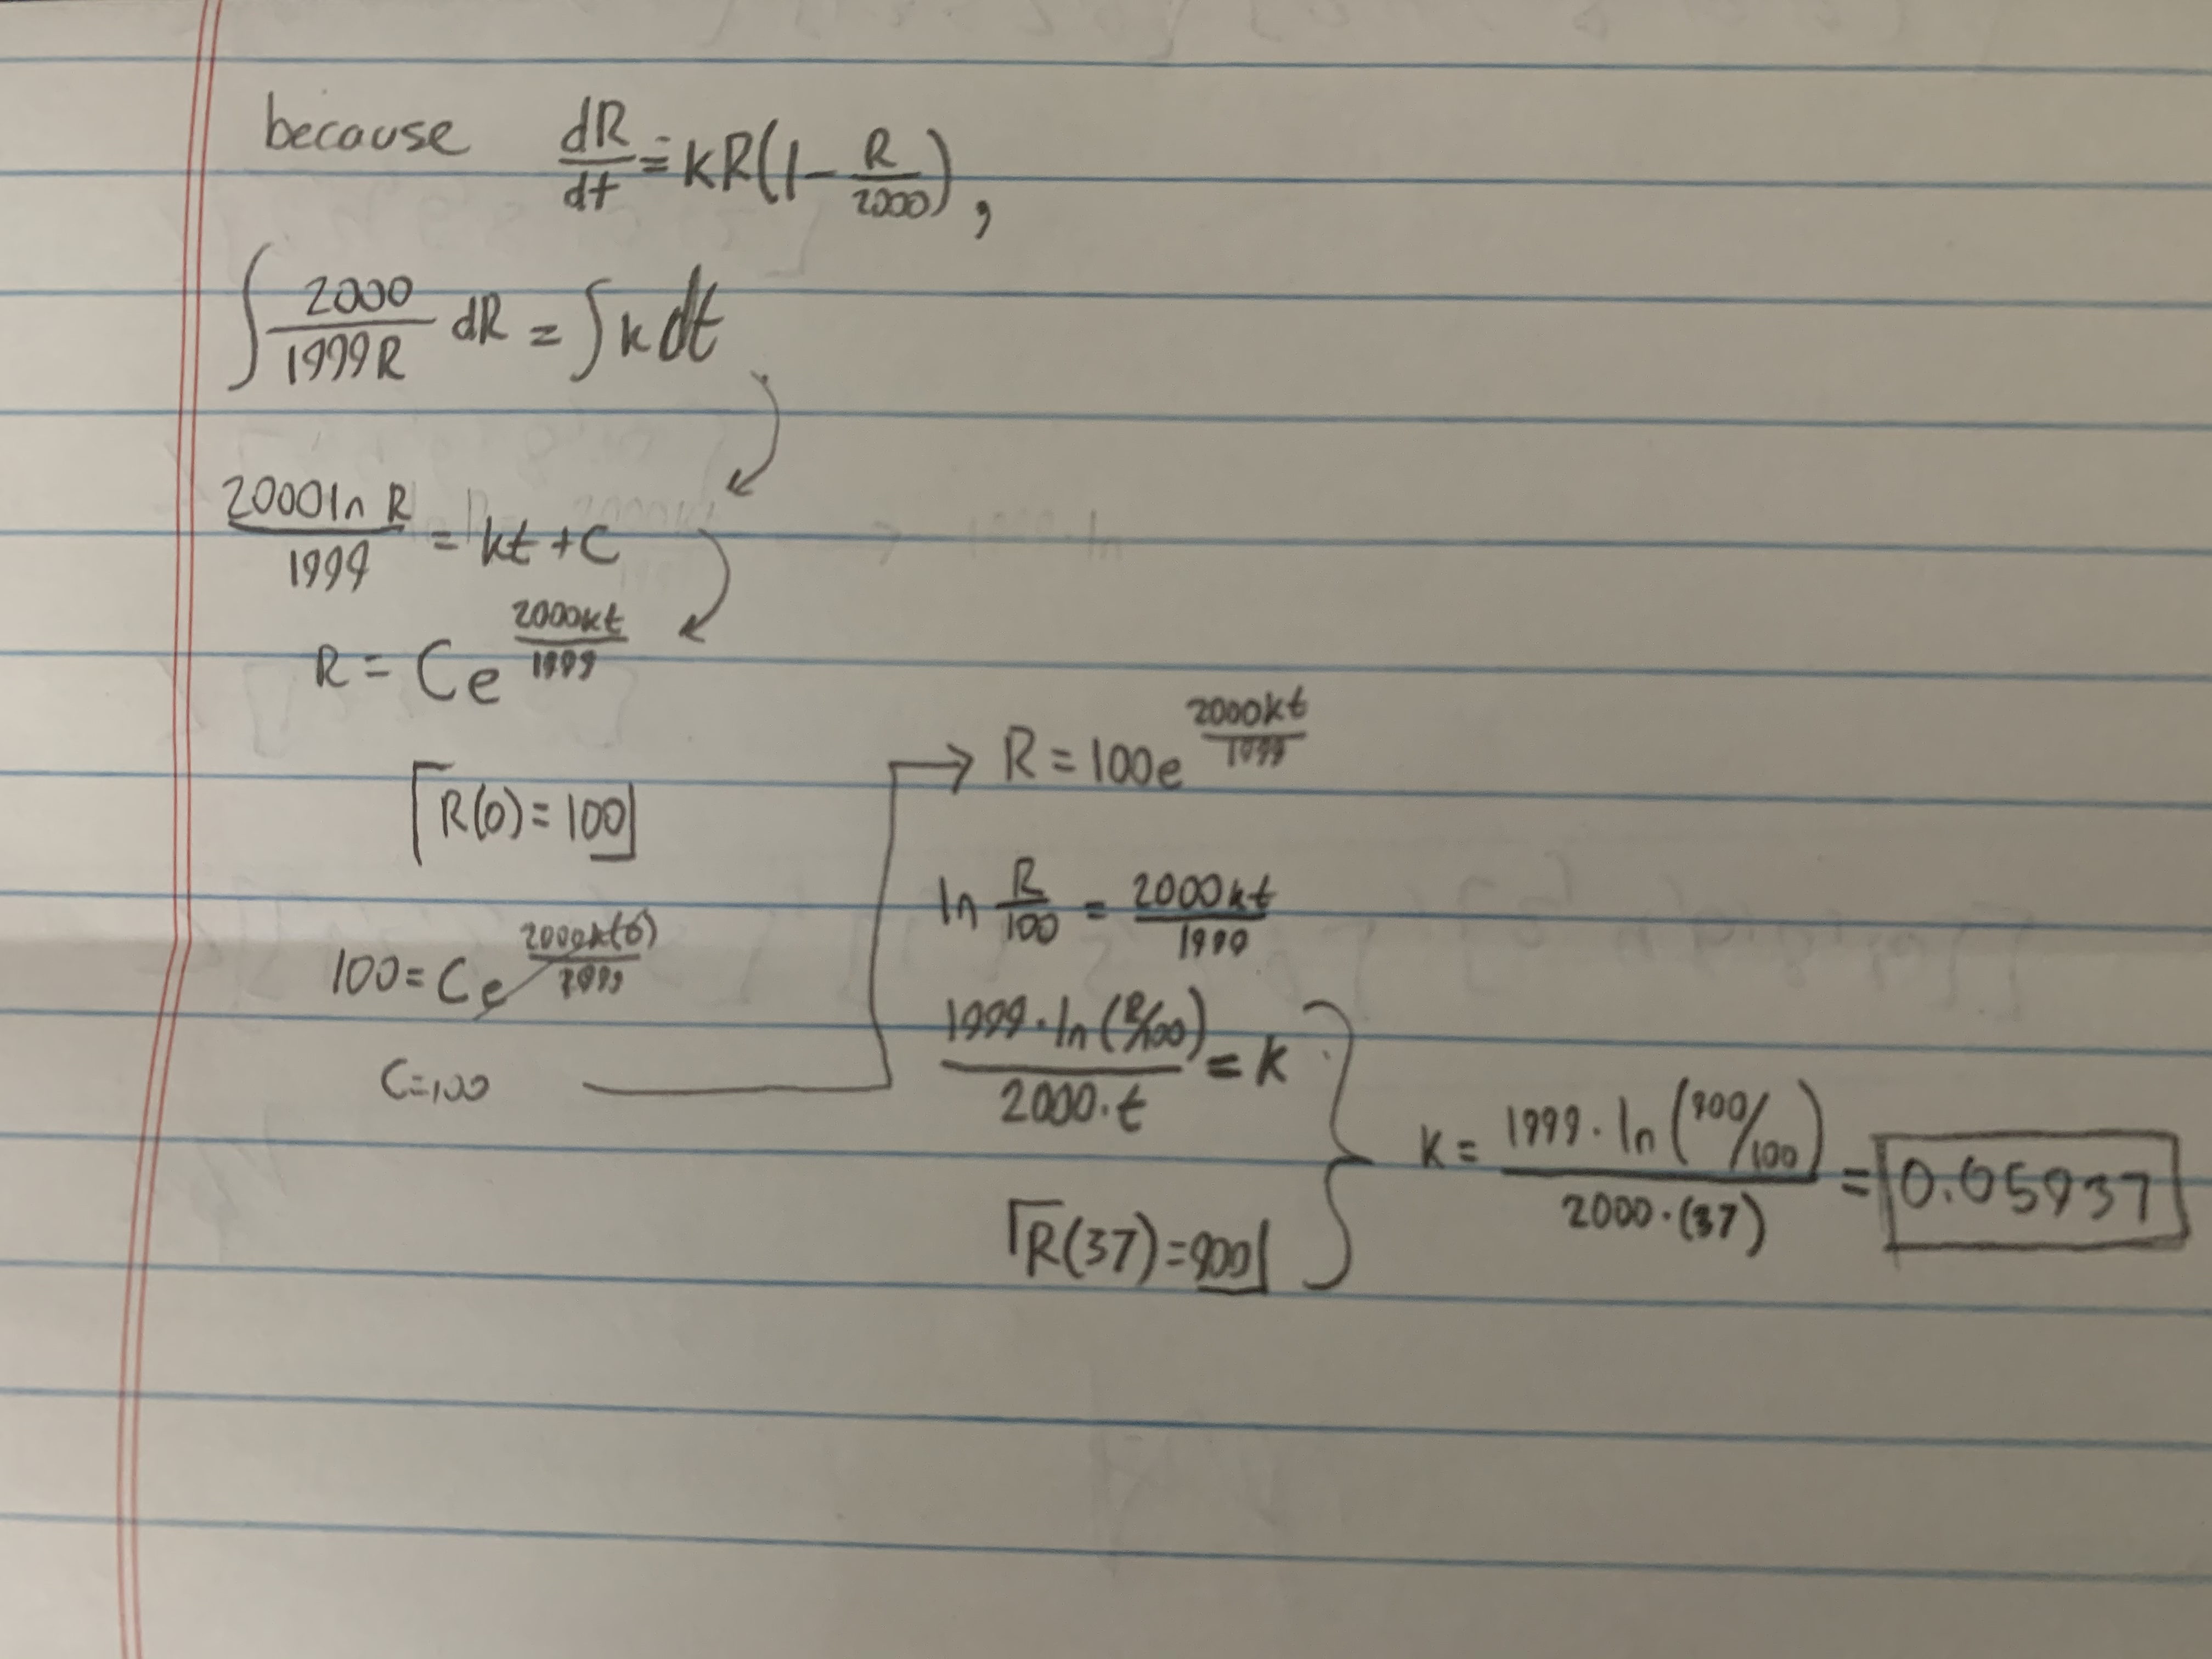 because dR/dt = kR(1 - R/2000),
∫ 2000/1999R dR = ∫ k dt
2000 ln R/1999 = kt + C
R = Ce^(2000kt/1999)
R(0) = 100
100 = Ce^(2000k(0)/1999)
C = 100
R = 100e^(2000kt/1999)
ln R/100 = 2000kt/1999
1999 · ln(R/100)/2000 · t = k
R(37) = 900
k = 1999 · ln(900/100)/2000 · (37) = 0.05937